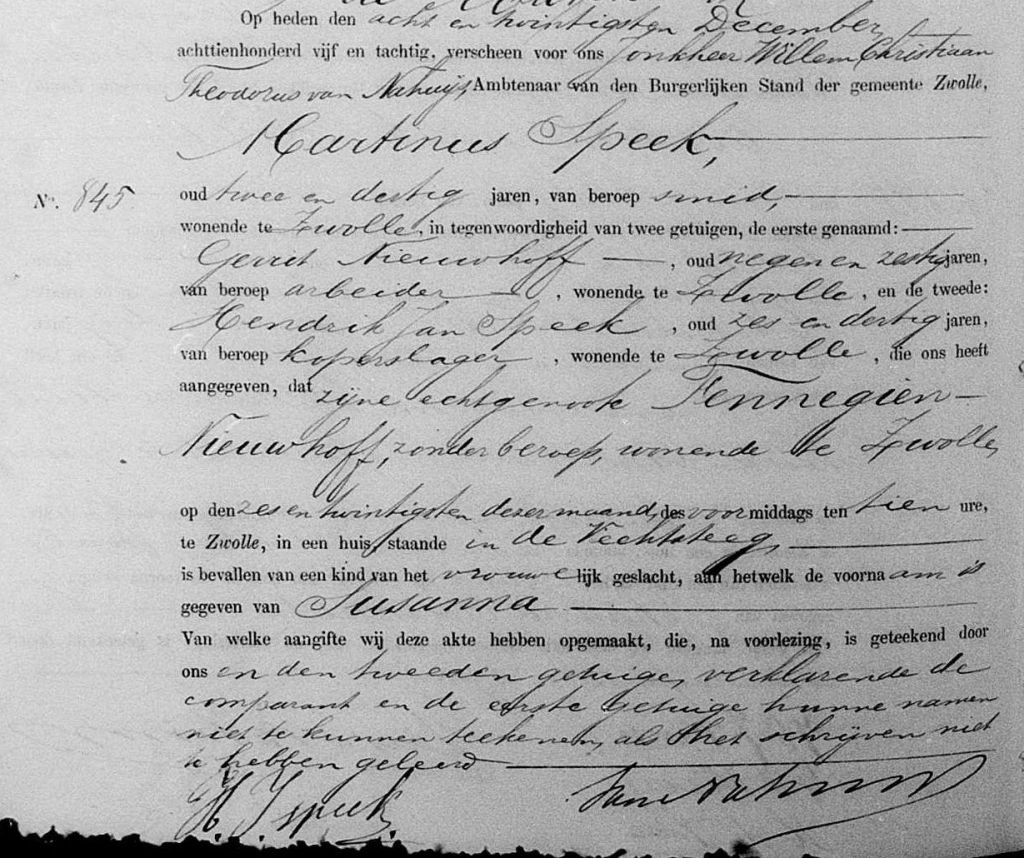 Op heden den acht en twintigsten December
achttienhonderd vijf en tachtig, verscheen voor ons Jonkheer Willem Christiaan
Theodorus van Nahuijs, Ambtenaar van den Burgerlijken Stand der gemeente Zwolle,
Martinus Speek,
No. 845
oud twee en dertig jaren, van beroep smid,
wonende te Zwolle, in tegenwoordigheid van twee getuigen, de eerste genaamd:
Gerrit Nieuwhoff, oud negen en zestig jaren,
van beroep arbeider, wonende te Zwolle, en de tweede:
Hendrik Jan Speek, oud zes en dertig jaren,
van beroep koperslager, wonende te Zwolle, die ons heeft
aangegeven, dat zijne echtgenoote Fennegien
Nieuwhoff, zonder beroep, wonende te Zwolle,
op den zes en twintigsten dezer maand, des voormiddags ten tien ure,
te Zwolle, in een huis, staande in de Vechtsteeg,
is bevallen van een kind van het vrouwelijk geslacht, aan hetwelk de voornaam is
gegeven van Susanna
Van welke aangifte wij deze akte hebben opgemaakt, die, na voorlezing, is geteekend door
ons en den tweeden getuige, verklarende de
comparant en de eerste getuige hunne namen
niet te kunnen teekenen, als het schrijven niet
te hebben geleerd
H. J. Speek
van Nahuijs